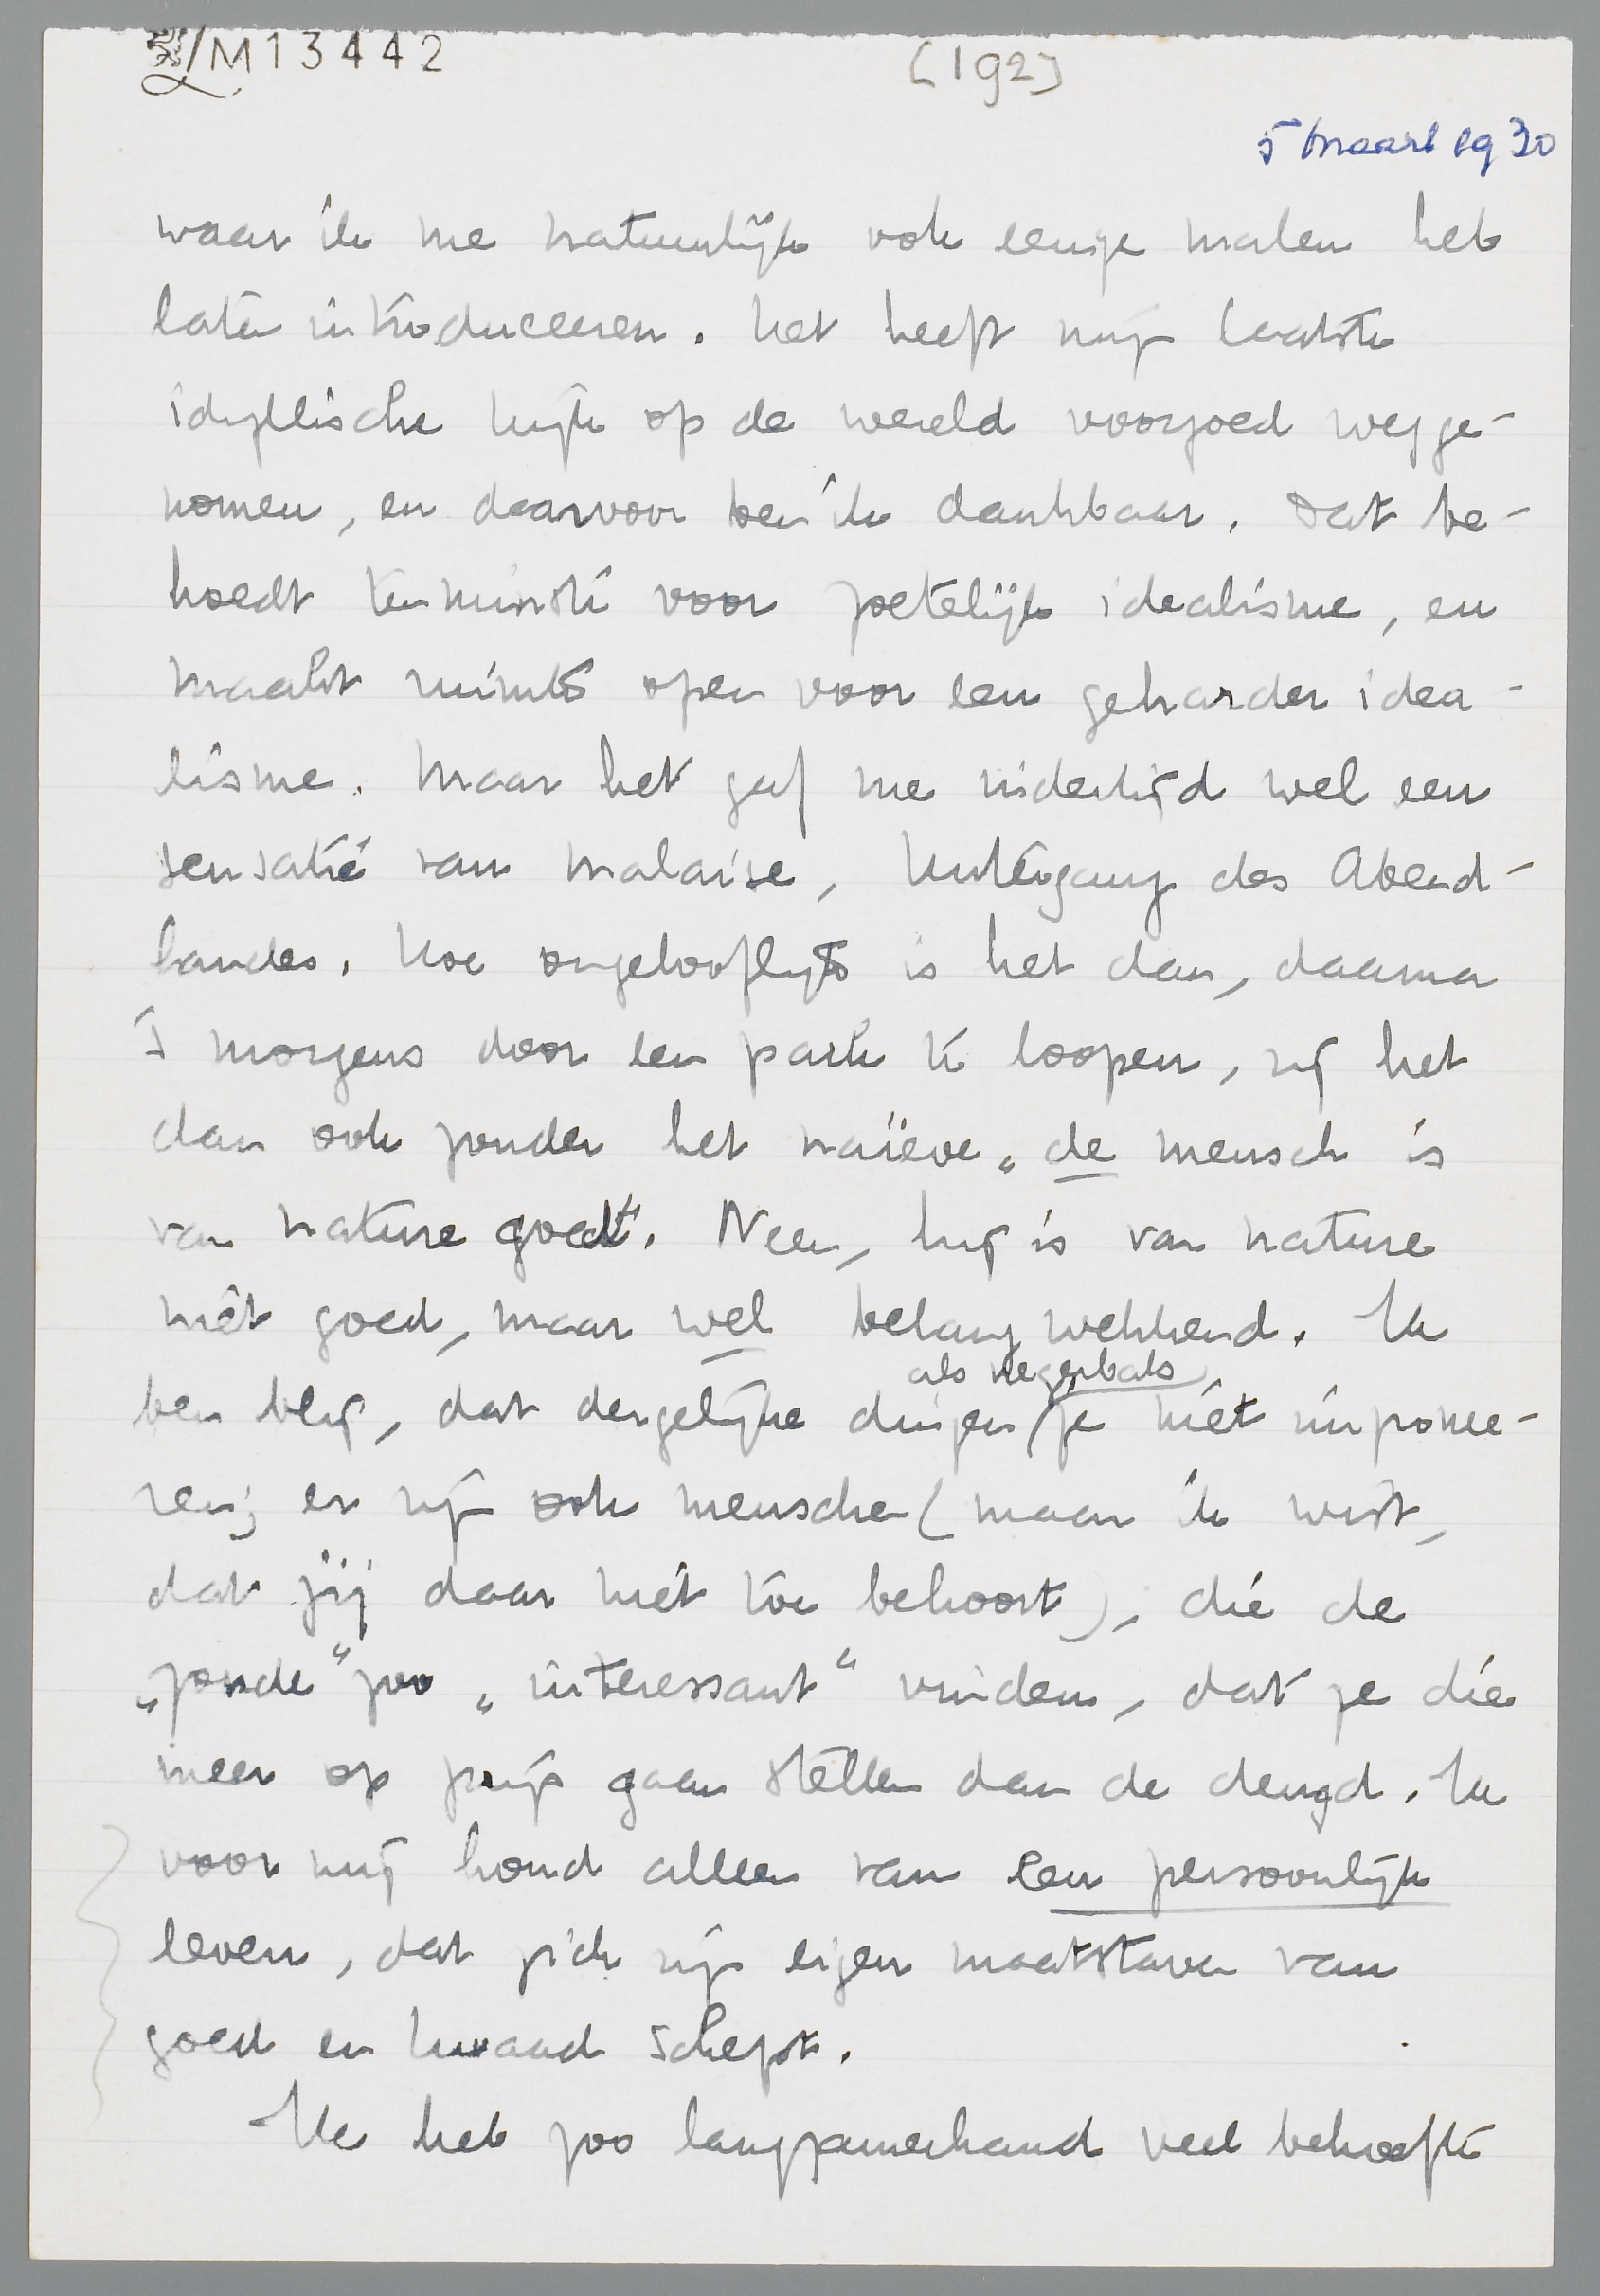 M13442
[192]
5 maart 1930
waar ik me natuurlijk ook eenige malen heb
laten introduceeren. Het heeft mijn laatste
idyllische kijk op de wereld voorgoed wegge-
nomen, en daarvoor ben ik dankbaar. Dat be-
hoedt tenminste voor zoetelijk idealisme, en
maakt ruimte open voor een geharder idea-
lisme. Maar het gaf me indertijd wel een
sensatie van malaise, Untergang des Abend-
landes. Hoe ongelooflijk is het dan, daarna
's morgens door een park te loopen, zij het
dan ook zonder het naïeve „de mensch is
van nature goed". Neen, hij is van nature
niet goed, maar wel belangwekkend. Ik
als negerbals
ben blij, dat dergelijke dingen je niet impone-
ren; er zijn ook menschen (maar ik wist,
dat jij daar niet toe behoort), die de
„zonde" zoo „interessant" vinden, dat ze die
meer op prijs gaan stellen dan de deugd. Ik
voor mij houd alleen van een persoonlijk
leven, dat zich zijn eigen maatstaven van
goed en kwaad schept.
Ik heb zoo langzamerhand veel behoefte